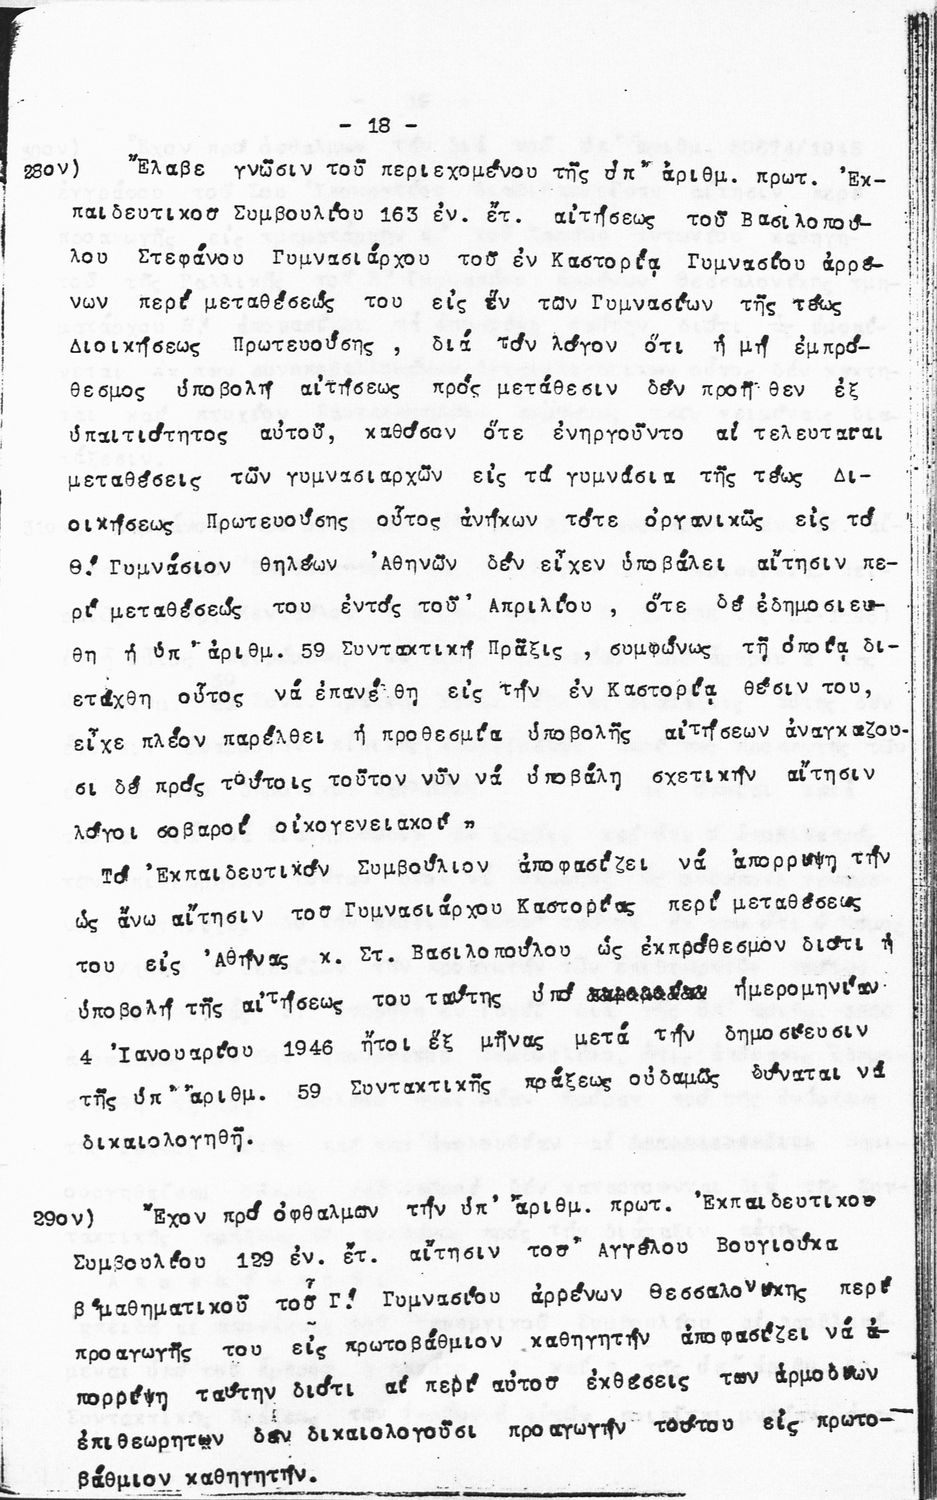 - 18 -
28ον) Ἔλαβε γνῶσιν τοῦ περιεχομένου τῆς ὑπ' ἀριθμ. πρωτ. Ἐκ-
παιδευτικοῦ Συμβουλίου 163 ἐν. ἔτ. αἰτήσεως τοῦ Βασιλοπού-
λου Στεφάνου Γυμνασιάρχου τοῦ ἐν Καστορίᾳ Γυμνασίου ἀρρέ-
νων περί μεταθέσεώς του εἰς ἕν τῶν Γυμνασίων τῆς τέως
Διοικήσεως Πρωτευούσης , διά τόν λόγον ὅτι ἡ μή ἐμπρό-
θεσμος ὑποβολή αἰτήσεως πρός μετάθεσιν δέν προῆ θεν ἐξ
ὑπαιτιότητος αὐτοῦ, καθόσον ὅτε ἐνηργοῦντο αἱ τελευταῖαι
μεταθέσεις τῶν γυμνασιαρχῶν εἰς τά γυμνάσια τῆς τέως Δι-
οικήσεως Πρωτευούσης οὗτος ἀνήκων τότε ὀργανικῶς εἰς τό
Θ.' Γυμνάσιον θηλέων Ἀθηνῶν δέν εἶχεν ὑποβάλει αἴτησιν πε-
ρί μεταθέσεώς του ἐντός τοῦ Ἀπριλίου , ὅτε δέ ἐδημοσιεύ-
θη ἡ ὑπ' ἀριθμ. 59 Συντακτική Πρᾶξις , συμφώνως τῇ ὁποίᾳ δι-
ετάχθη οὗτος νά ἐπανέλθη εἰς τήν ἐν Καστορίᾳ θέσιν του,
εἶχε πλέον παρέλθει ἡ προθεσμία ὑποβολῆς αἰτήσεων ἀναγκάζου-
σι δέ πρός τούτοις τοῦτον νῦν νά ὑποβάλη σχετικήν αἴτησιν
λόγοι σοβαροί οἰκογενειακοί "
Τό Ἐκπαιδευτικόν Συμβούλιον ἀποφασίζει νά ἀπορρίψη τήν
ὡς ἄνω αἴτησιν τοῦ Γυμνασιάρχου Καστορίας περί μεταθέσεώς
του εἰς Ἀθήνας κ. Στ. Βασιλοπούλου ὡς ἐκπρόθεσμον διότι ἡ
ὑποβολή τῆς αἰτήσεως του ταύτης ὑπό ἡμερομηνίαν
4 Ἰανουαρίου 1946 ἤτοι ἕξ μῆνας μετά τήν δημοσίευσιν
τῆς ὑπ' ἀριθμ. 59 Συντακτικῆς πράξεως οὐδαμῶς δύναται νά
δικαιολογηθῇ.
29ον) Ἔχον πρό ὀφθαλμῶν τήν ὑπ' ἀριθμ. πρωτ. Ἐκπαιδευτικοῦ
Συμβουλίου 129 ἐν. ἔτ. αἴτησιν τοῦ Ἀγγέλου Βουγιούκα
β'μαθηματικοῦ τοῦ Γ.' Γυμνασίου ἀρρένων Θεσσαλονίκης περί
προαγωγῆς του εἰς πρωτοβάθμιον καθηγητήν ἀποφασίζει νά ἀ-
πορρίψη ταύτην διότι αἱ περί αὐτοῦ ἐκθέσεις τῶν ἁρμοδίων
ἐπιθεωρητῶν δέν δικαιολογοῦσι προαγωγήν τούτου εἰς πρωτο-
βάθμιον καθηγητήν.